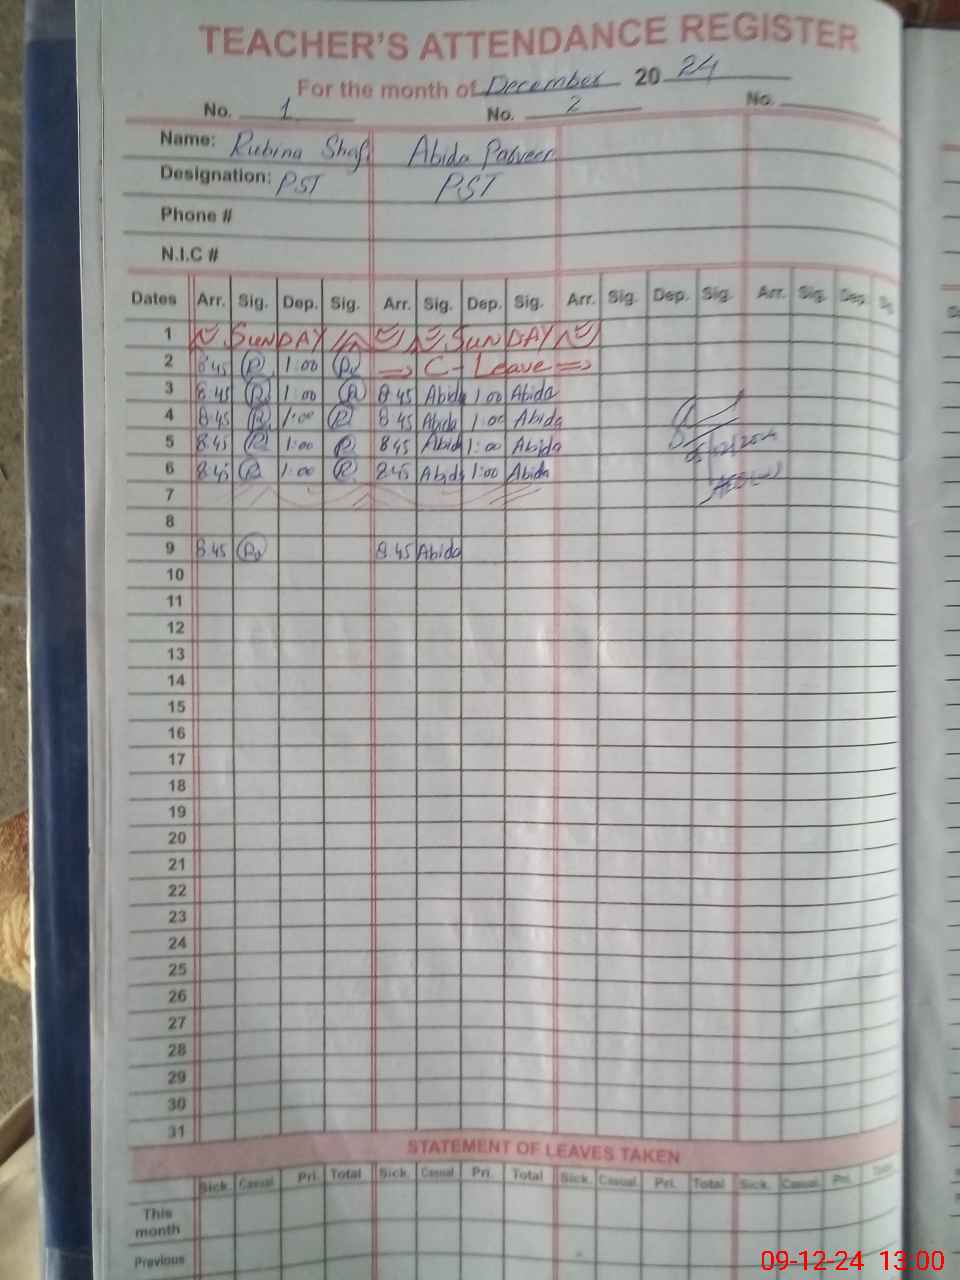 TEACHER'S ATTENDANCE REGISTER
For the month of December 20 24
No. 1 No. 2 No.
Name: Rubina Shaf Abida Parveen
Designation: PST PST
Phone #
N.I.C #
Dates Arr. Sig. Dep. Sig. Arr. Sig. Dep. Sig. Arr. Sig. Dep. Sig. Arr. Sig. Dep. Sig.
1 SUNDAY SUNDAY
2 8:45 1:00 C-Leave
3 8:45 R 1:00 R 8:45 Abida 1:00 Abida
4 8:45 R 1:00 R 8:45 Abida 1:00 Abida
5 8:45 R 1:00 R 8:45 Abida 1:00 Abida
6 8:45 R 1:00 R 8:45 Abida 1:00 Abida
7
8
9 8:45 8:45 Abida
10
11
12
13
14
15
16
17
18
19
20
21
22
23
24
25
26
27
28
29
30
31
STATEMENT OF LEAVES TAKEN
Sick. Casual. Pri. Total Sick. Casual. Pri. Total Sick. Casual. Pri. Total Sick. Casual. Pri.
This month
Previous
09-12-24 13:00